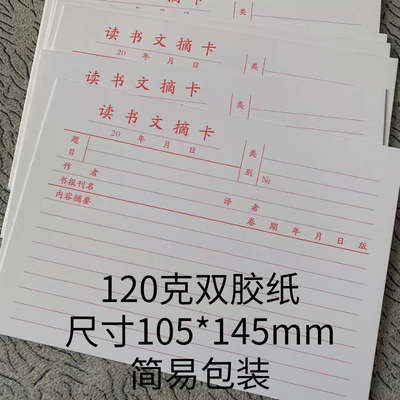 读书文摘卡
20 年 月 日
类
读书文摘卡
20 年 月 日
类
读书文摘卡
20 年 月 日
题目
类别
№
作者
译者
书报刊名
卷 期 年 月 日 版
内容摘要
120克双胶纸
尺寸105*145mm
简易包装